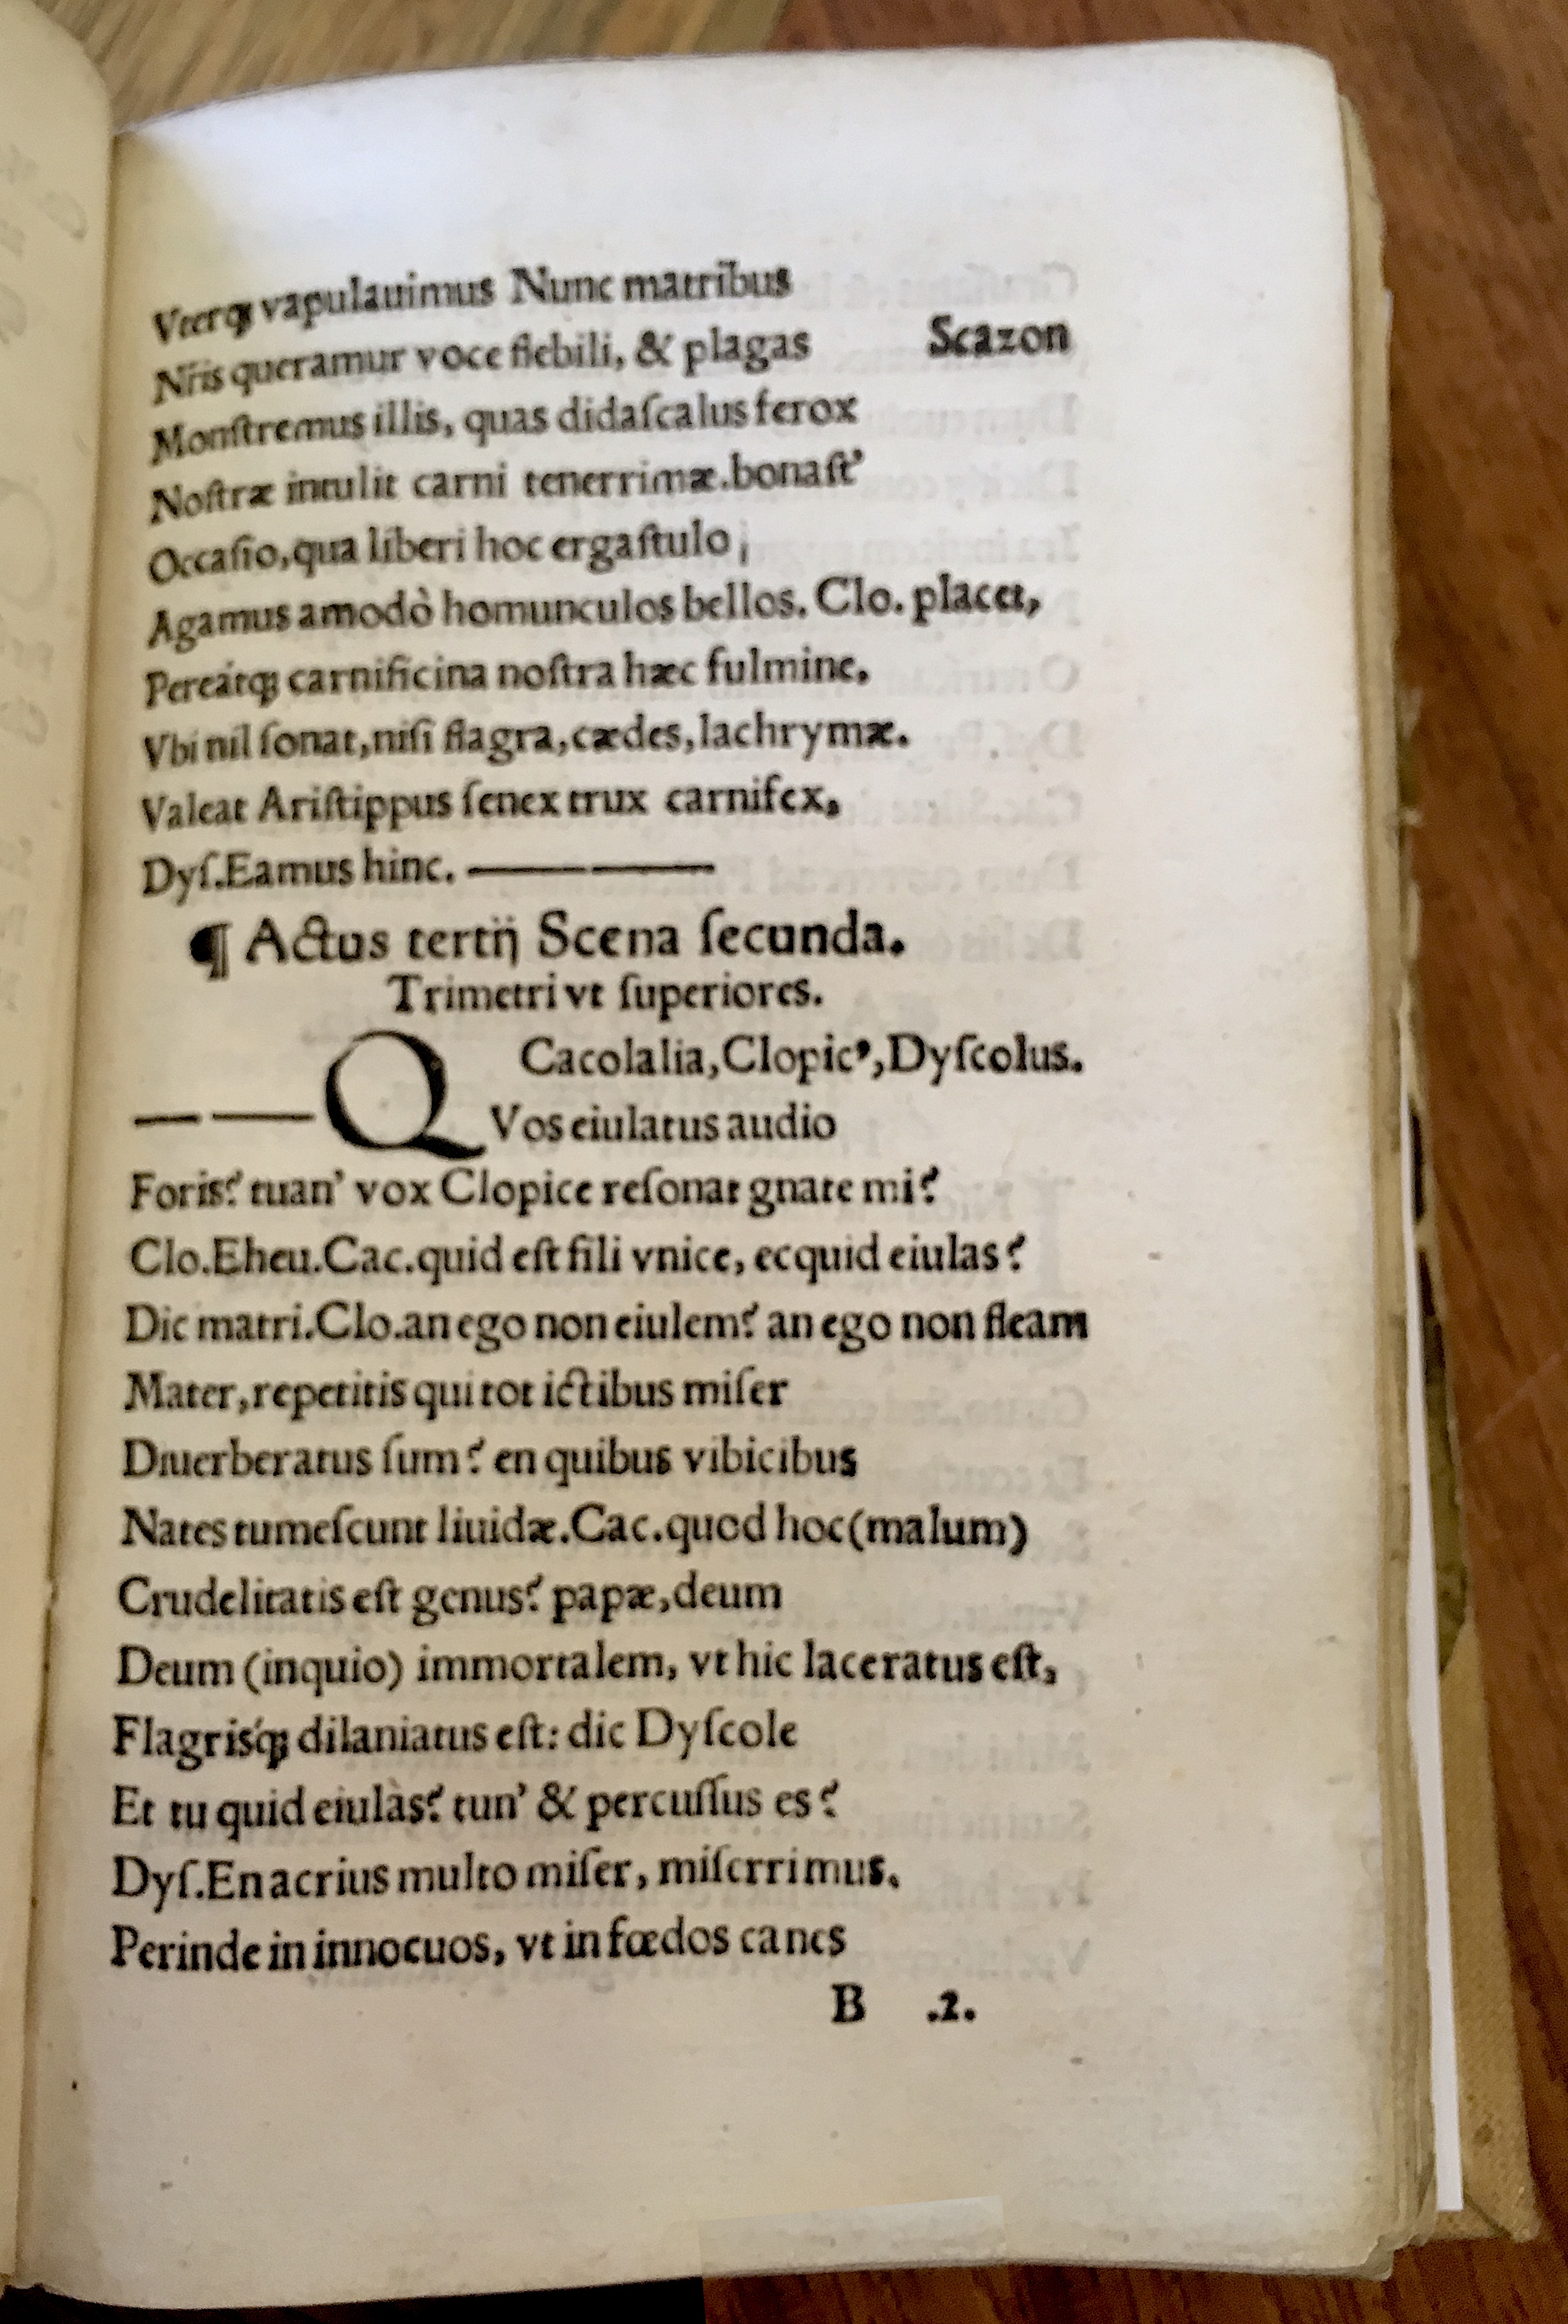 Vterq; vapulauimus Nunc matribus
Nr̃is queramur voce flebili, & plagas Scazon
Monſtremus illis, quas didaſcalus ferox
Noſtræ intulit carni tenerrimæ.bonaſt’
Occaſio,qua liberi hoc ergaſtulo,
Agamus amodò homunculos bellos. Clo. placet,
Pereátq; carnificina noſtra hæc fulmine,
Vbi nil ſonat,niſi flagra,cædes,lachrymæ.
Valeat Ariſtippus ſenex trux carnifex,
Dyſ.Eamus hinc. — —
¶ Actus tertij Scena ſecunda.
Trimetri vt ſuperiores.
Cacolalia,Clopicꝰ,Dyſcolus.
— — QVos eiulatus audio
Foris? tuan’ vox Clopice reſonat gnate mi?
Clo.Eheu.Cac.quid eſt fili vnice, ecquid eiulas?
Dic matri.Clo.an ego non eiulem? an ego non fleam
Mater,repetitis qui tot ictibus miſer
Diuerberatus ſum? en quibus vibicibus
Nates tumeſcunt liuidæ.Cac.quod hoc(malum)
Crudelitatis eſt genus? papæ,deum
Deum (inquio) immortalem, vt hic laceratus eſt,
Flagriśq; dilaniatus eſt: dic Dyſcole
Et tu quid eiulàs? tun’ & percuſſus es?
Dyſ.En acrius multo miſer, miſerrimus.
Perinde in innocuos, vt in fœdos canes
B .2.